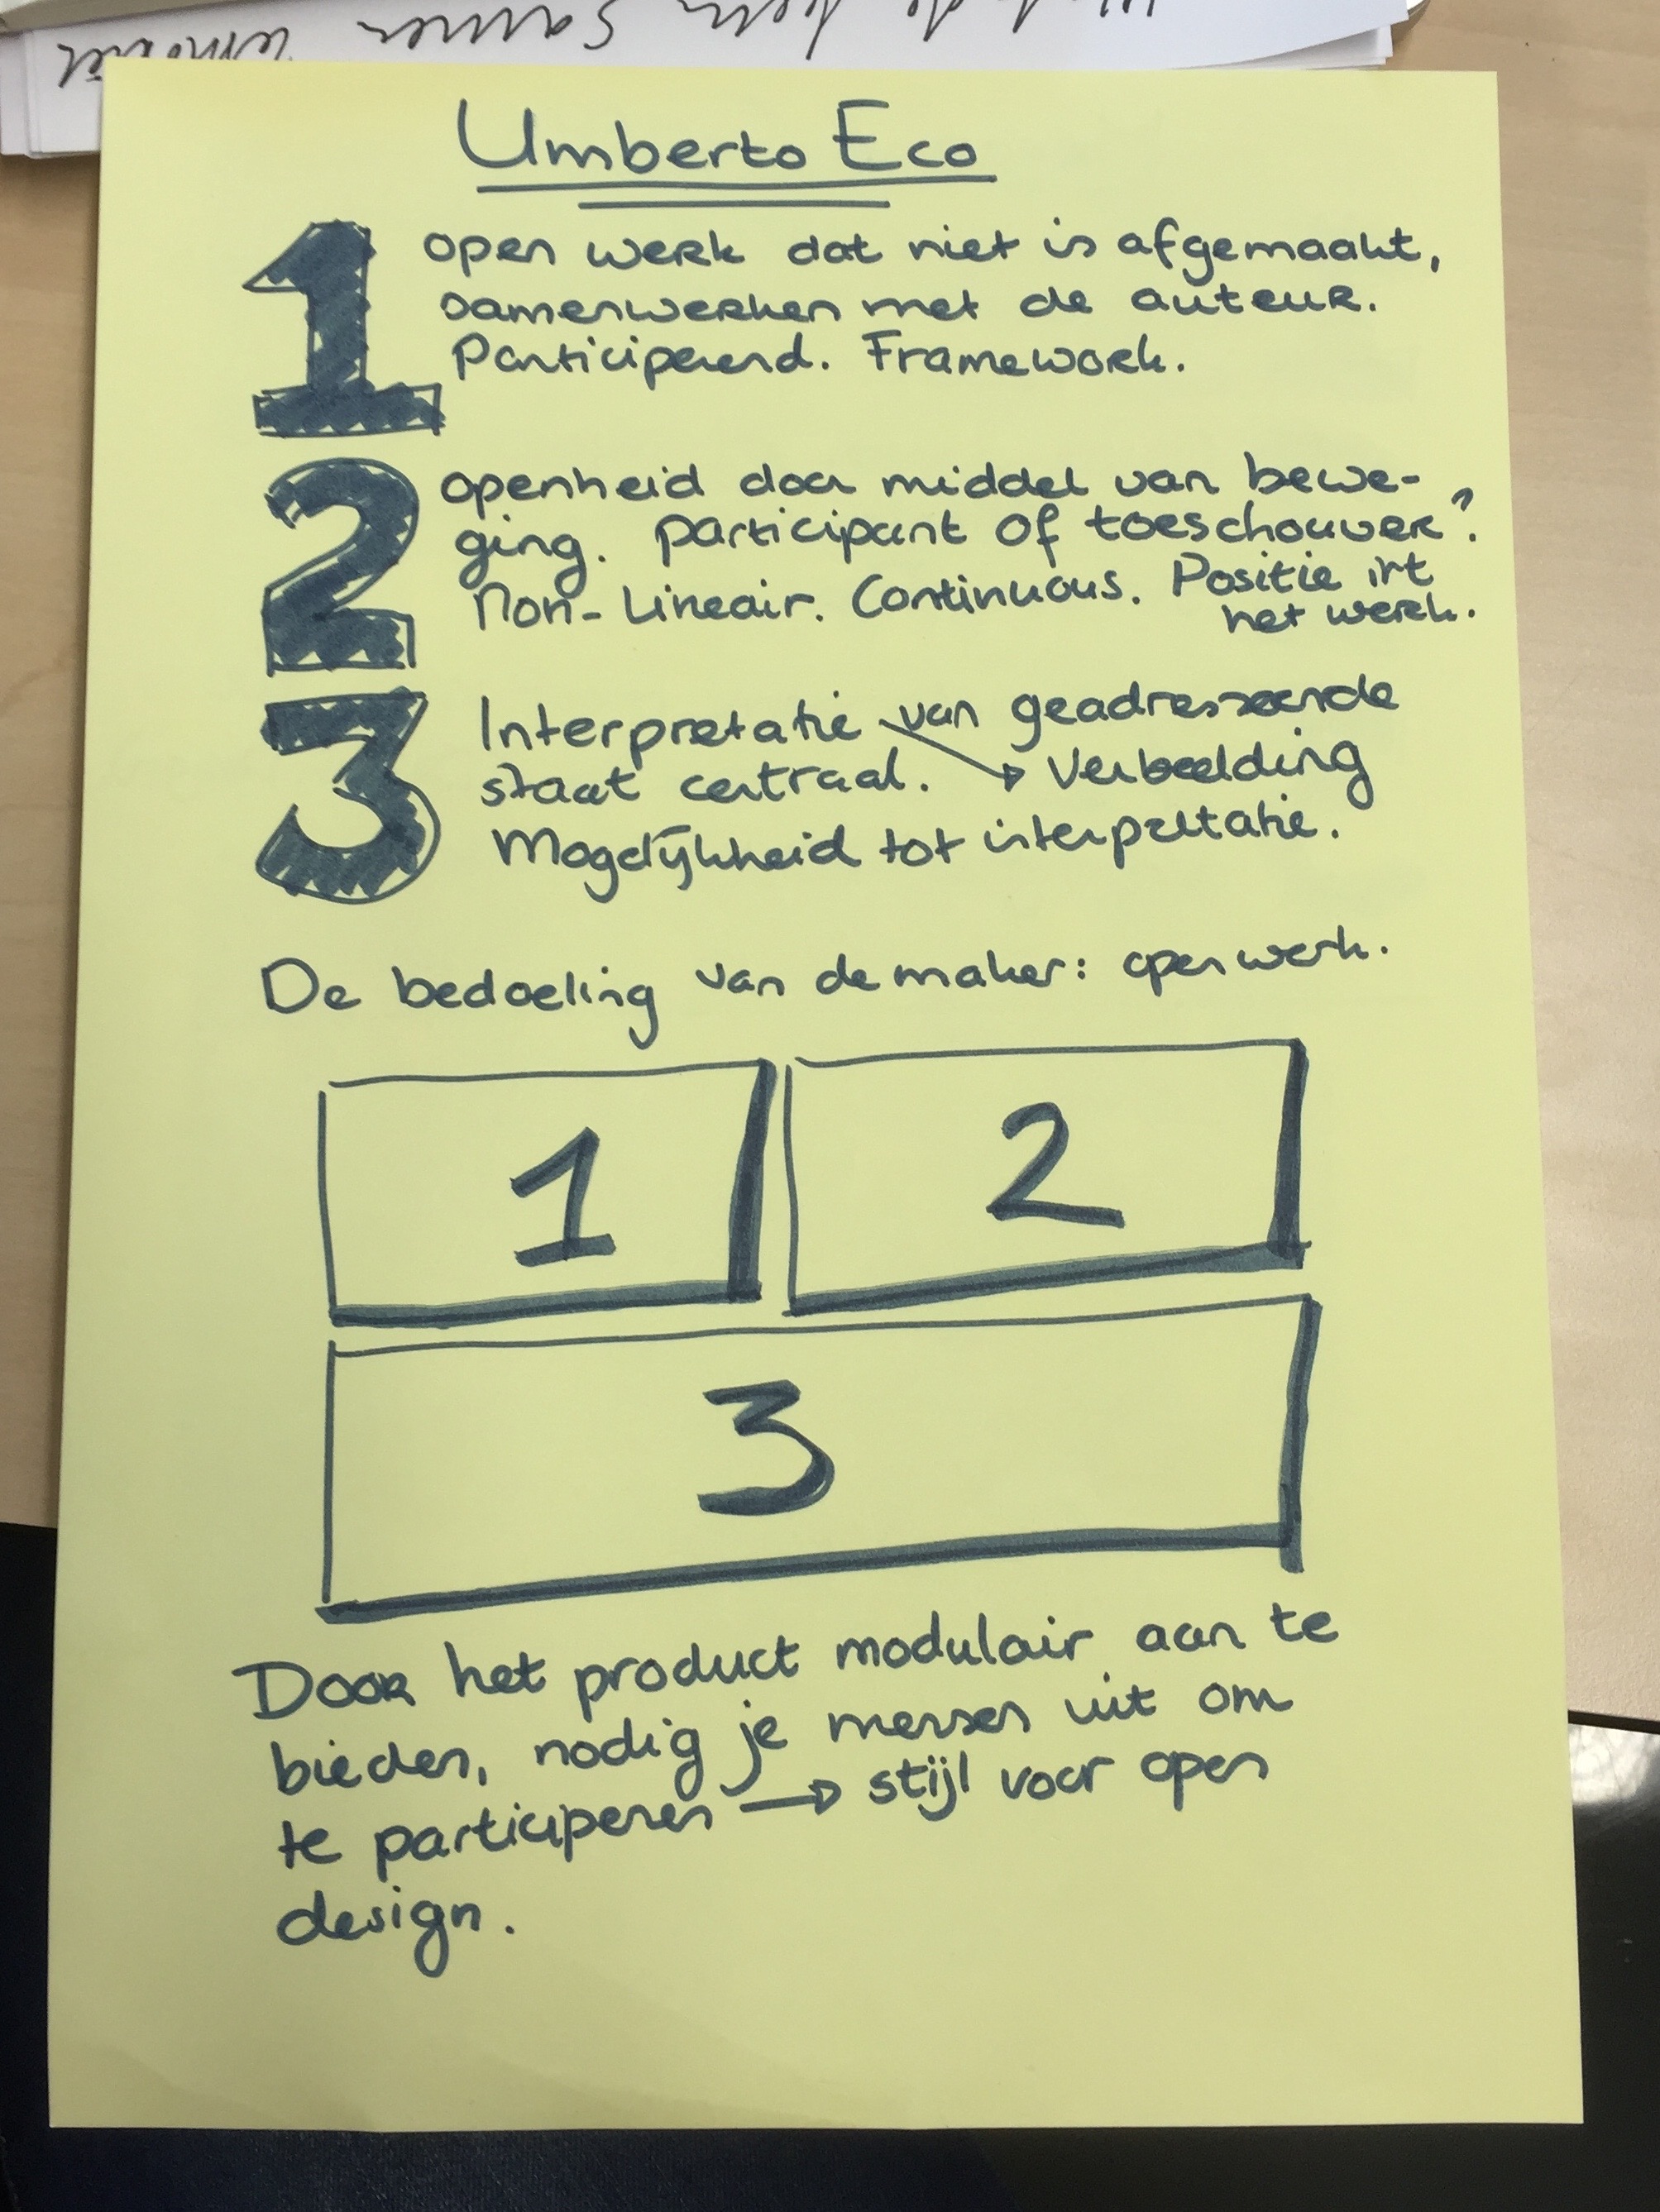 Umberto Eco
1
open werk dat niet is afgemaakt,
samenwerken met de auteur.
Participerend. Framework.
2
openheid door middel van bewe-
ging. participant of toeschouwer?
Non-Lineair. Continuous. Positie irt
het werk.
3
Interpretatie van geadresseerde
staat centraal. → Verbeelding
Mogelijkheid tot interpretatie.
De bedoeling van de maker: open werk.
1 2
3
Door het product modulair aan te
bieden, nodig je mensen uit om
te participeren → stijl voor open
design.